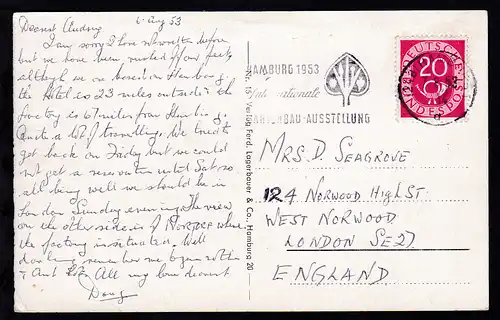 6 Aug 53
Dearest Audrey
I am sorry I have not written before
but we have been rushed off our feet
although we are based on Hamburg
the Hotel is 23 miles outside & the
factory is 67 miles from Hamburg
Quite a lot of travelling. We tried to
get back on Friday but we could
not get a reservation until Sat so
all being well we should be in
London Sunday evening. The view
on the other side is of NORTORF where
the factory is situated. Well
darling remember me to your mother
& Aunt All my love dearest
Doug
Nr. 15 Verlag Ferd. Lagerbauer & Co., Hamburg 20
HAMBURG 1953
Internationale
GARTENBAU-AUSSTELLUNG
DEUTSCHE
20
BUNDESPOST
MRS. D. SEAGROVE
124 NORWOOD HIGH ST
WEST NORWOOD
LONDON SE27
ENGLAND